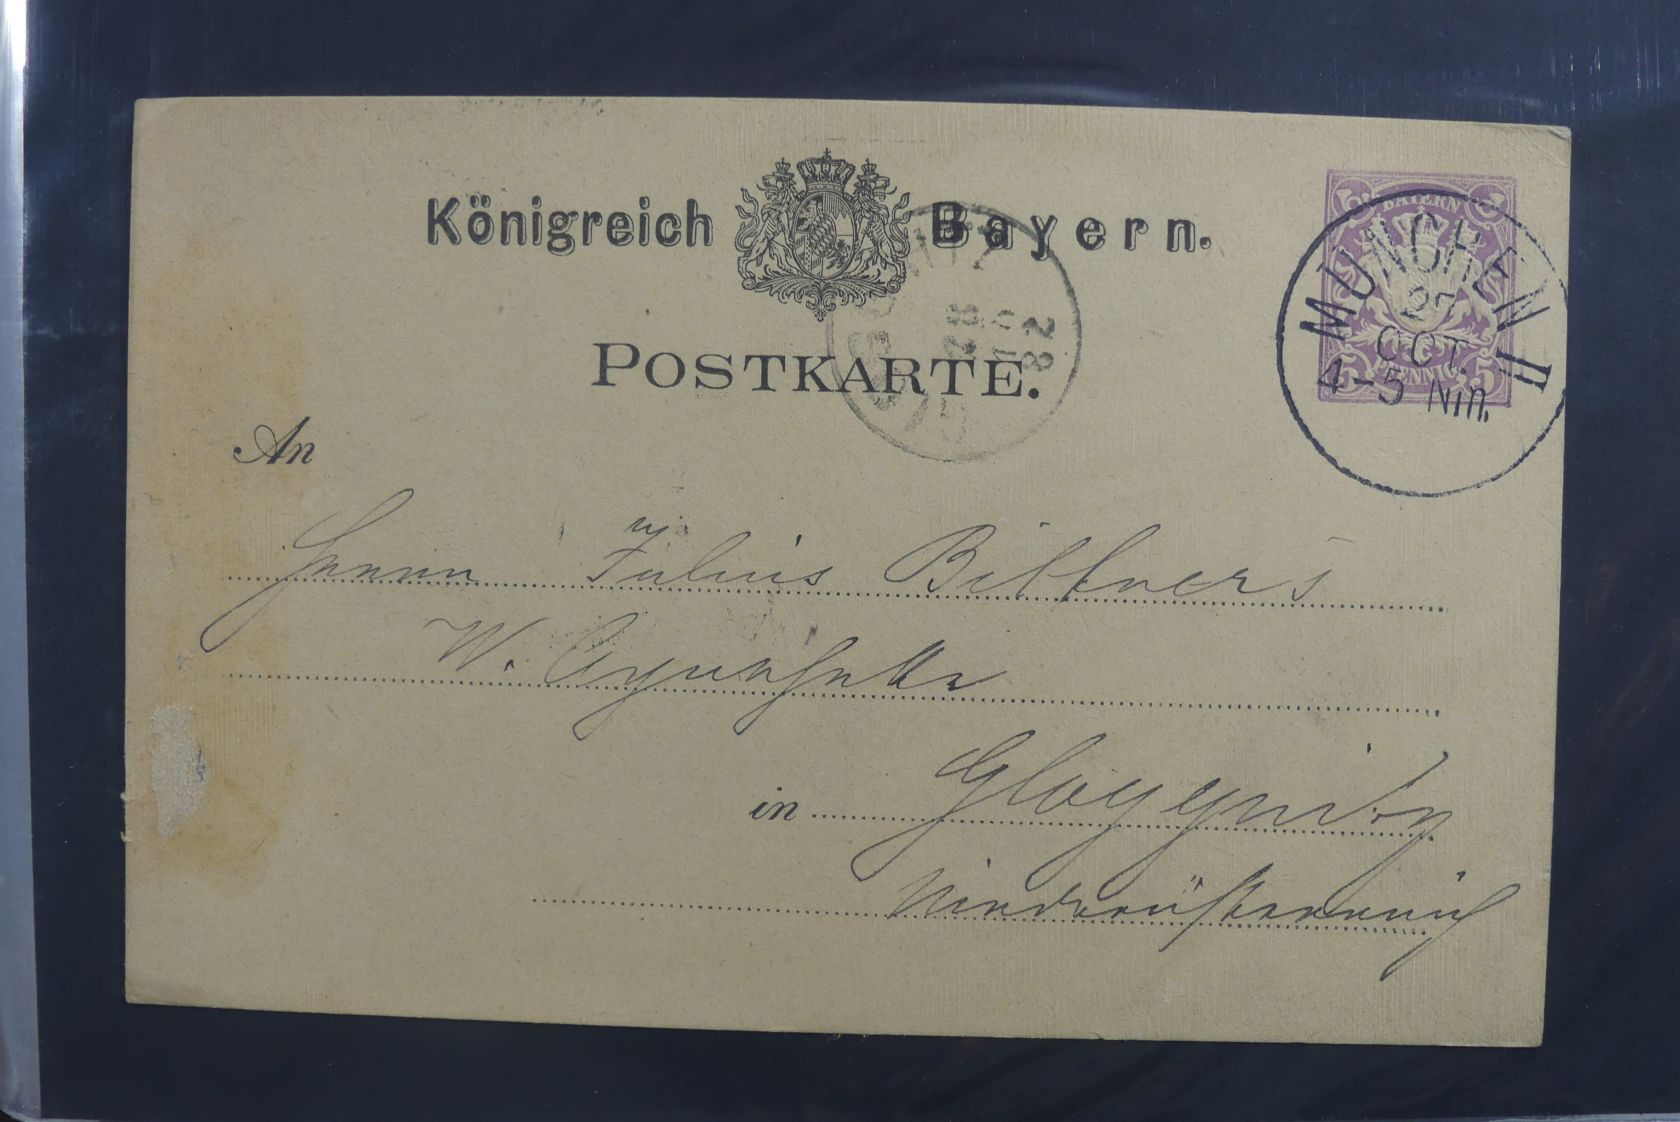 Königreich Bayern.
POSTKARTE.
BAYERN
5 PFENNIG 5
MÜNCHEN II
27
OCT.
4-5 Nm.
28
10
82
An
Herrn Julius Bittner's
W.
in Gloggnitz
Niederösterreich